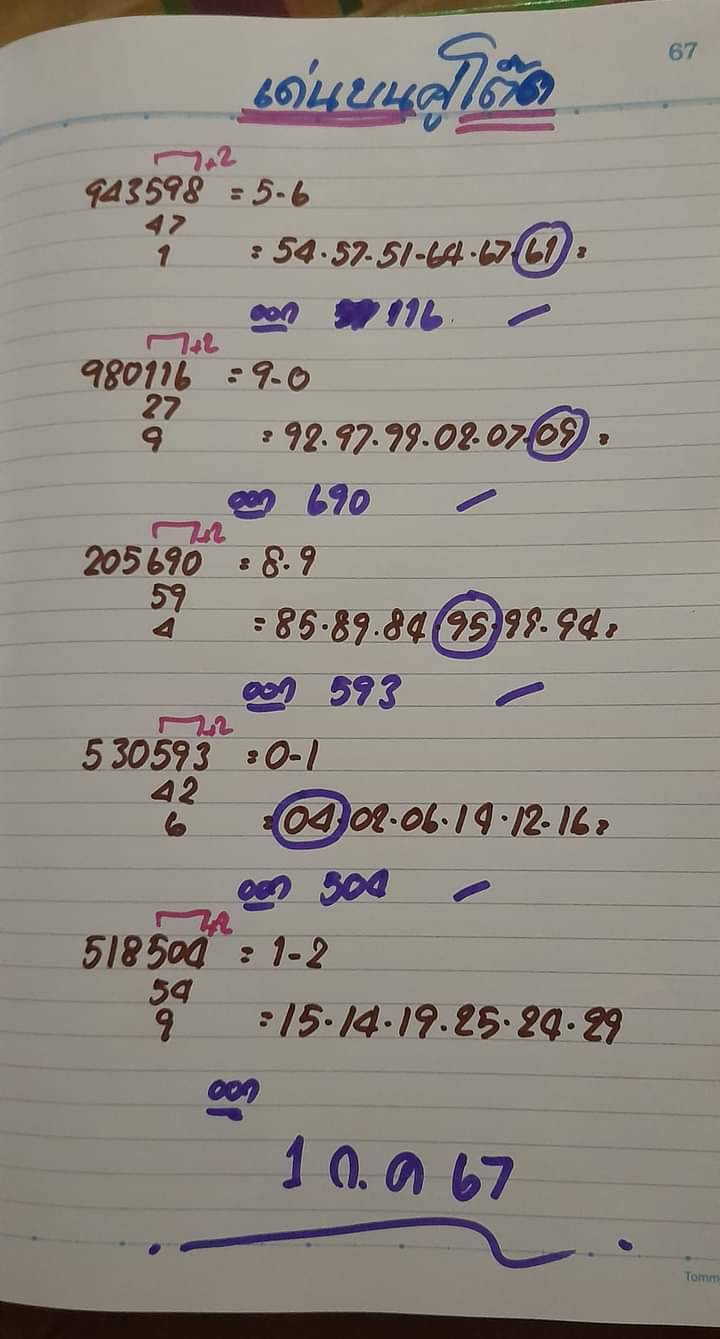 67
เด่นบนคู่โต๊ด
+2
943598 = 5-6
47
1 = 54.57.51-64.67.61 =
ออก 116
+2
980116 = 9-0
27
9 = 92.97.99.02.07.09 =
ออก 690
+2
205690 = 8.9
59
4 = 85.89.84.95.99.94 =
ออก 593
+2
530593 = 0-1
42
6 = 04.02.06.14.12-16 =
ออก 504
+2
518504 = 1-2
54
9 = 15.14.19.25.24.29
ออก
1 ก.ค 67
Tomm